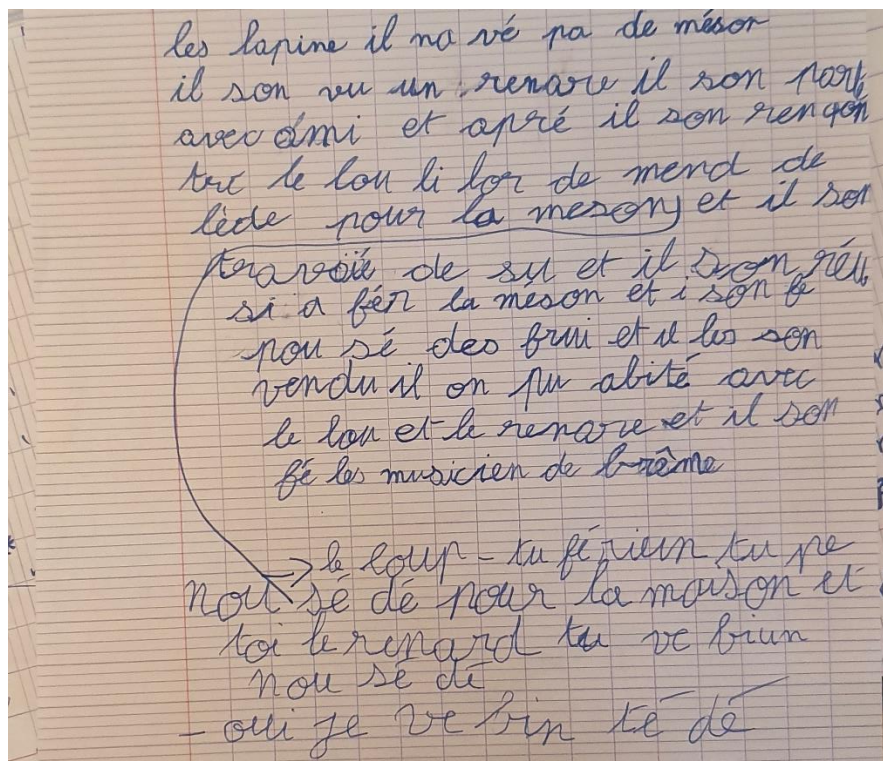 les lapine il na vé pa de méson
il son vu un renare il son parti
avec ami et apré il son rengon
tré le lou li lor de mend de
lède pour la meson et il son
travaié de su et il son réu
si a fér la méson et i son fé
pou sé des frui et il les son
vendu il on pu abité avec
le lou et le renare et il son
fé les musicien de brême
le loup - tu fé rien tu pe
nou sé dé pour la maison et
toi le renard tu ve biun
nou sé dé
- oui je ve bin té dé